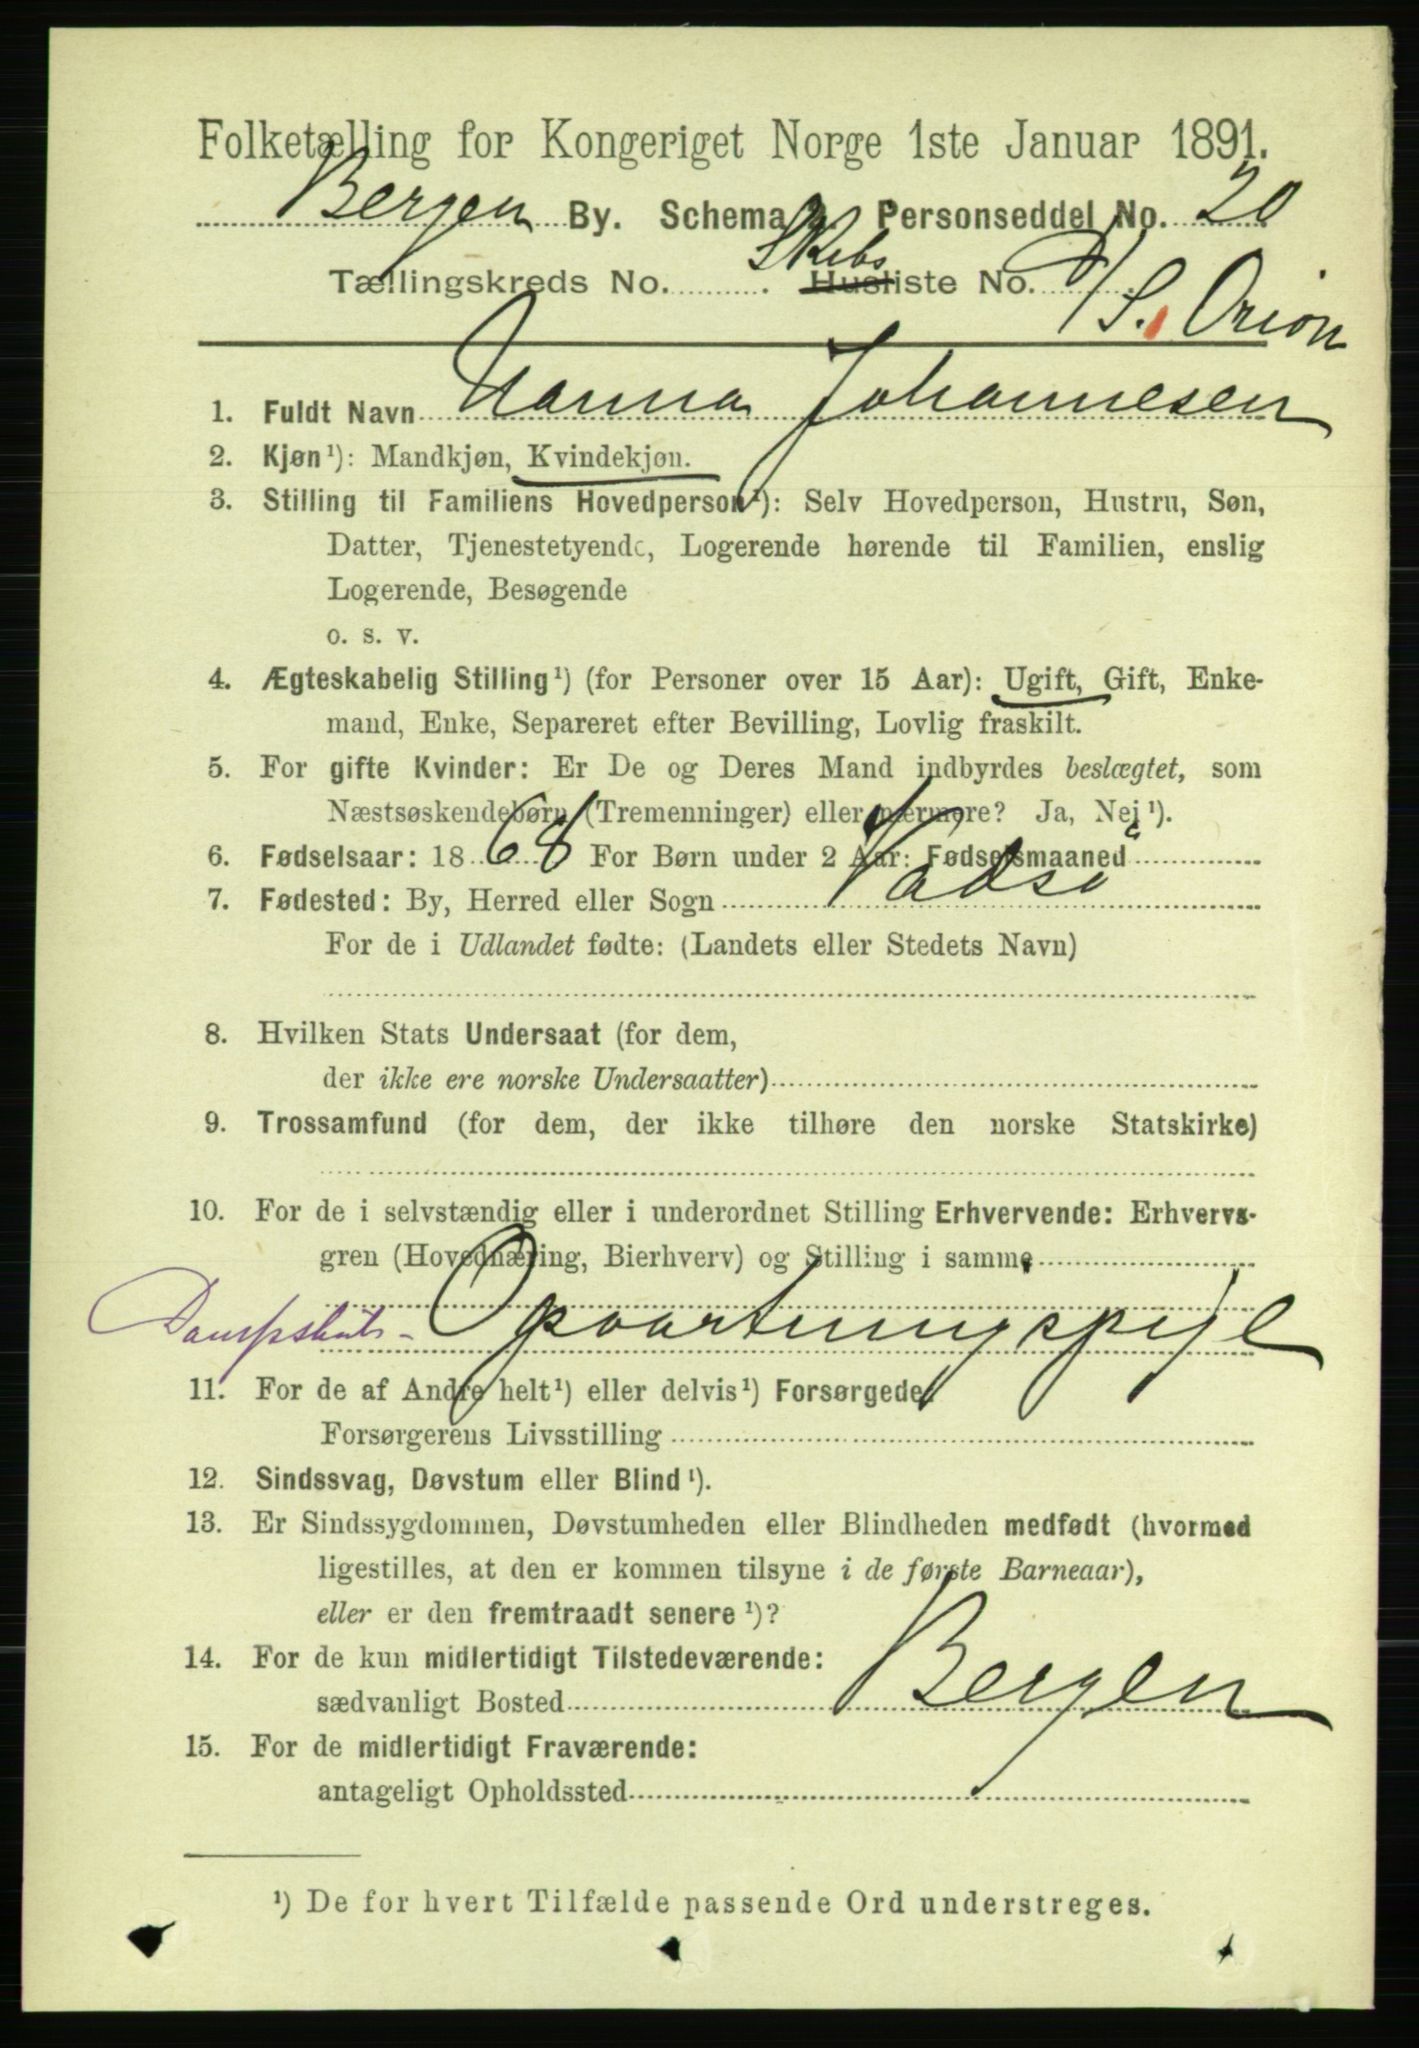 Folketælling for Kongeriget Norge 1ste Januar 1891.
Bergen By. Schema 2. Personseddel No. 20
Tællingskreds No. ......... . Skibs Husliste No. ......... .
D/S. Orion
1. Fuldt Navn Nanna Johannesen
2. Kjøn¹): Mandkjøn, Kvindekjøn.
3. Stilling til Familiens Hovedperson¹): Selv Hovedperson, Hustru, Søn,
Datter, Tjenestetyende, Logerende hørende til Familien, enslig
Logerende, Besøgende
o. s. v.
4. Ægteskabelig Stilling¹) (for Personer over 15 Aar): Ugift, Gift, Enke-
mand, Enke, Separeret efter Bevilling, Lovlig fraskilt.
5. For gifte Kvinder: Er De og Deres Mand indbyrdes beslægtet, som
Næstsøskendebørn (Tremenninger) eller nærmere? Ja, Nej¹).
6. Fødselsaar: 1868 For Børn under 2 Aar: Fødselsmaaned
7. Fødested: By, Herred eller Sogn Vadsö
For de i Udlandet fødte: (Landets eller Stedets Navn)
8. Hvilken Stats Undersaat (for dem,
der ikke ere norske Undersaatter)
9. Trossamfund (for dem, der ikke tilhøre den norske Statskirke)
10. For de i selvstændig eller i underordnet Stilling Erhvervende: Erhvervs-
gren (Hovednæring, Bierhverv) og Stilling i samme
Dampskibs- Opvartningspige
11. For de af Andre helt¹) eller delvis¹) Forsørgede:
Forsørgerens Livsstilling
12. Sindssvag, Døvstum eller Blind¹).
13. Er Sindssygdommen, Døvstumheden eller Blindheden medfødt (hvormed
ligestilles, at den er kommen tilsyne i de første Barneaar),
eller er den fremtraadt senere¹)?
14. For de kun midlertidigt Tilstedeværende:
sædvanligt Bosted Bergen
15. For de midlertidigt Fraværende:
antageligt Opholdssted
¹) De for hvert Tilfælde passende Ord understreges.